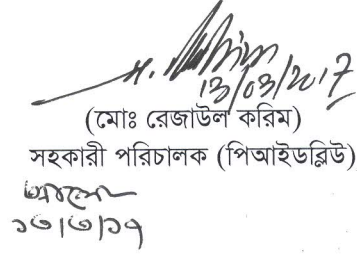 13/03/2017
(মোঃ রেজাউল করিম)
সহকারী পরিচালক (পিআইডব্লিউ)
১৩/৩/১৭